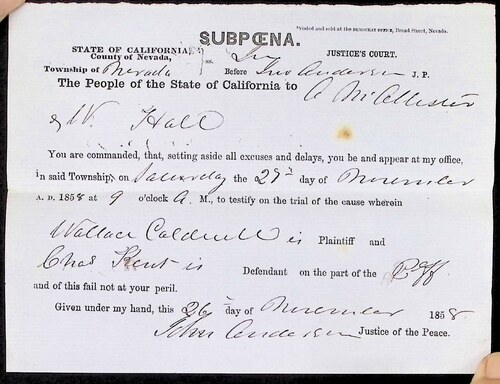 Printed and sold at the DEMOCRAT OFFICE, Broad Street, Nevada.
SUBPŒNA.
STATE OF CALIFORNIA,
County of Nevada, ss. In JUSTICE'S COURT.
Township of Nevada Before Jno Anderson J. P.
The People of the State of California to
A McAllister
& W. Hall
You are commanded, that, setting aside all excuses and delays, you be and appear at my office,
in said Township, on Saturday the 27th day of November
A. D. 1858 at 9 o'clock A M., to testify on the trial of the cause wherein
Wallace Caldwell is Plaintiff and
Chas Kent is Defendant on the part of the Plff
and of this fail not at your peril.
Given under my hand, this 26 day of November 1858
John Anderson Justice of the Peace.